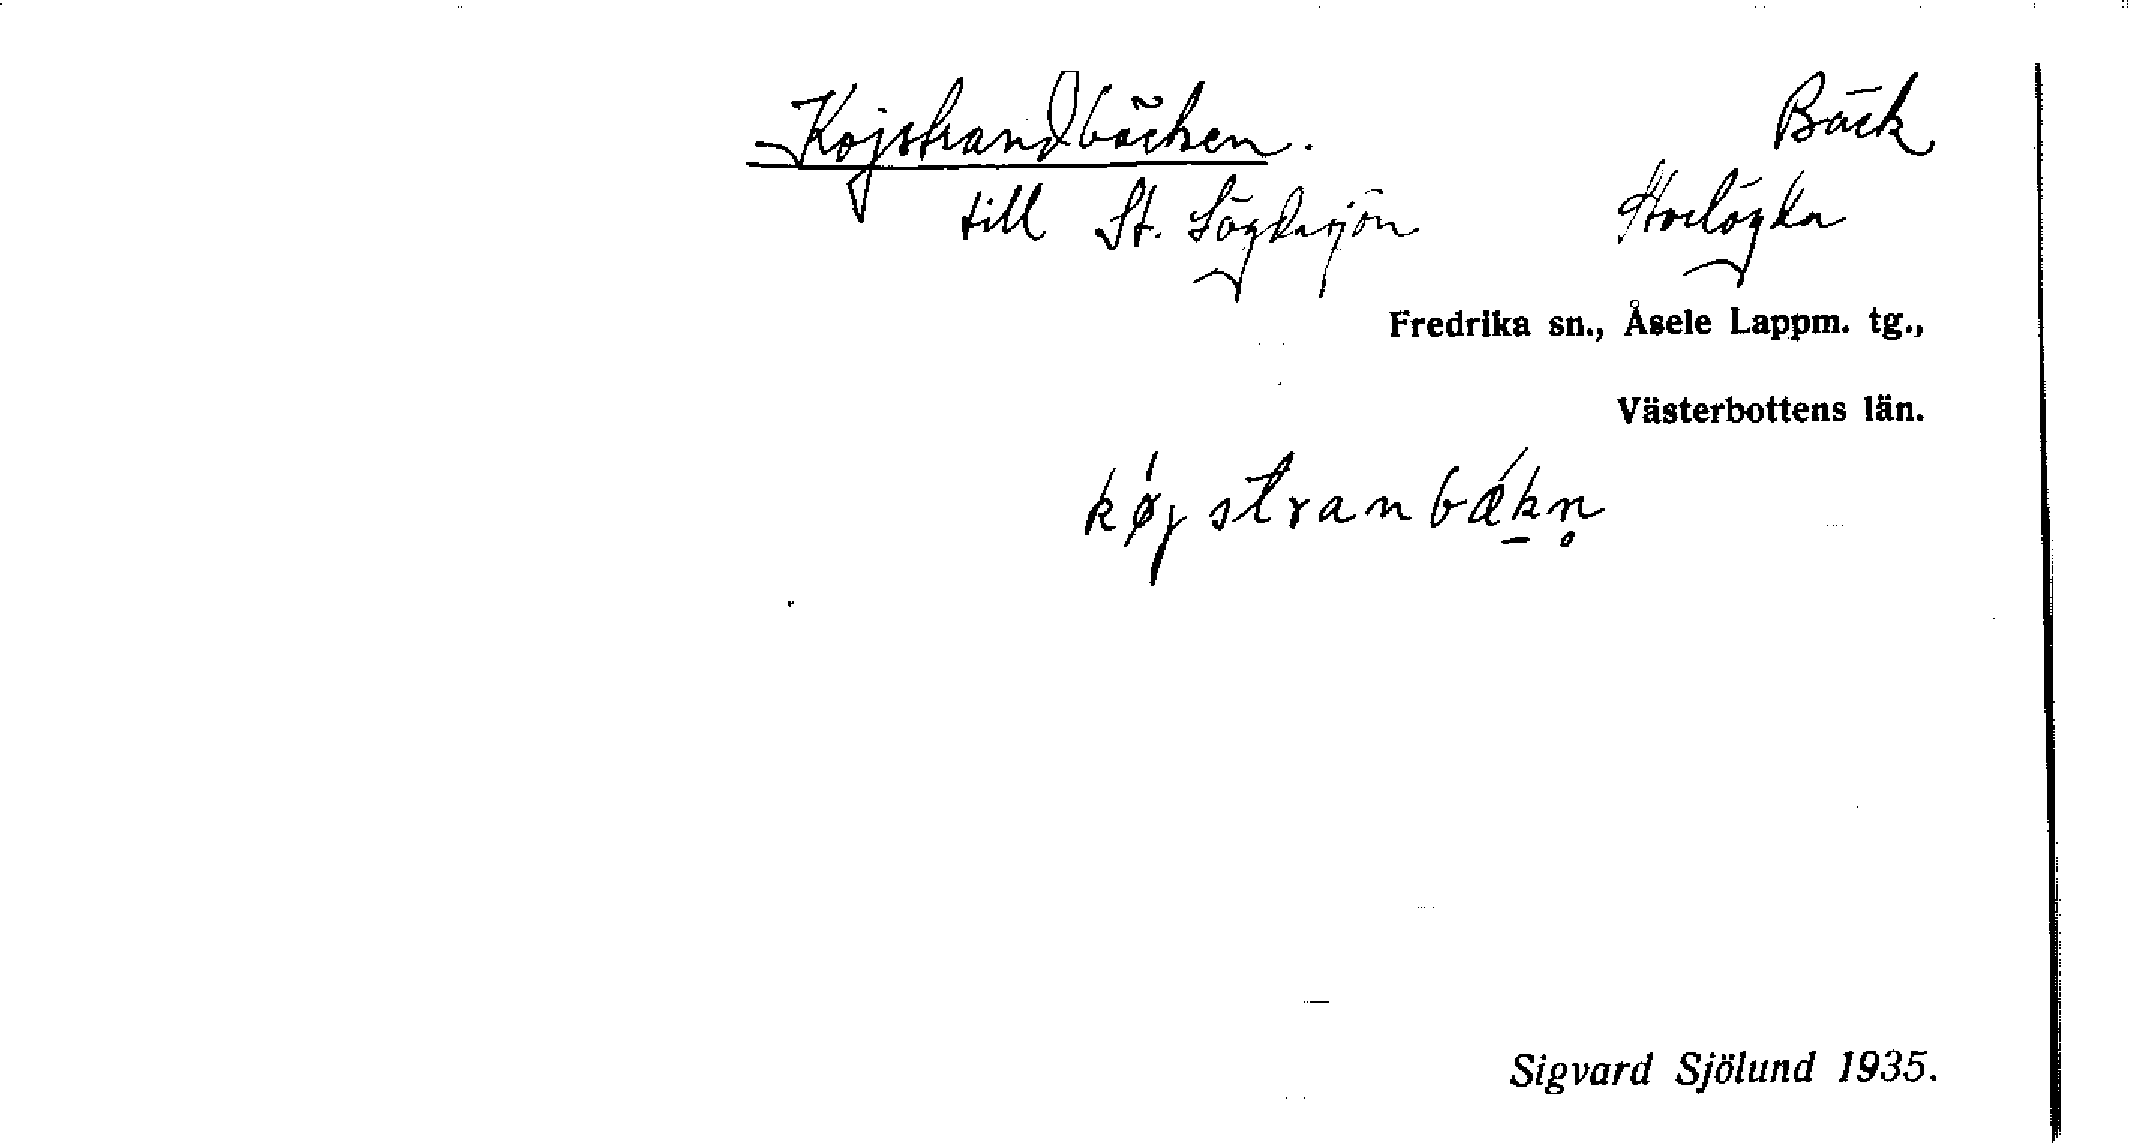 Kojstrandbäcken. Bäck
till St. Lögdasjön Storlögda
Fredrika sn., Åsele Lappm. tg.,
Västerbottens län.
køjstranbækn̥
Sigvard Sjölund 1935.